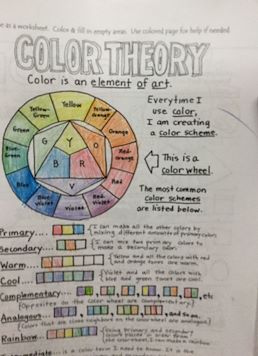 as a worksheet. Color & fill in empty areas. Use colored page for help if needed
COLOR THEORY
Color is an element of art.
Yellow
Yellow-Green
Yellow-Orange
Green
Orange
Blue-Green
Red-Orange
Blue
Red
Blue-Violet
Red-Violet
Violet
G
Y
O
B
R
V
Everytime I
use color,
I am creating
a color scheme.
This is a
color wheel.
The most common
color schemes
are listed below.
Primary
I can make all the other colors by
mixing different amounts of primary colors.
Secondary
I can mix two primary colors to
make a secondary color.
Warm
Yellow and all the colors with red
and orange tones are warm.
Cool
Violet and all the colors with
blue and green tones are cool.
Complementary , , , etc
(Opposites on the color wheel are complementary)
Analogous , and so on
(Colors that are close neighbors on the color wheel are analogous.)
Rainbow
Using Primary and Secondary
colors placed in order from
the color wheel, I can make a rainbow.